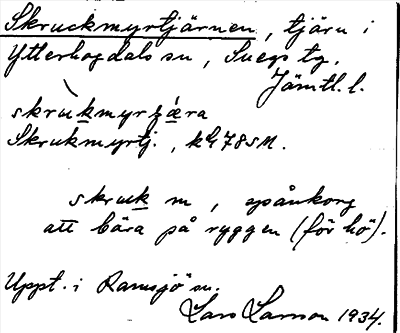 Skruckmyrtjärnen, tjärn i
Ytterhogdals sn, Svegs tg,
Jämtl. l.
skrukmyrtjæra
Skrukmyrtj., kbl 78 SM.
skruk m, spånkorg
att bära på ryggen (för hö).
Uppt. i Ramsjö sn.
Lars Larsson 1934.